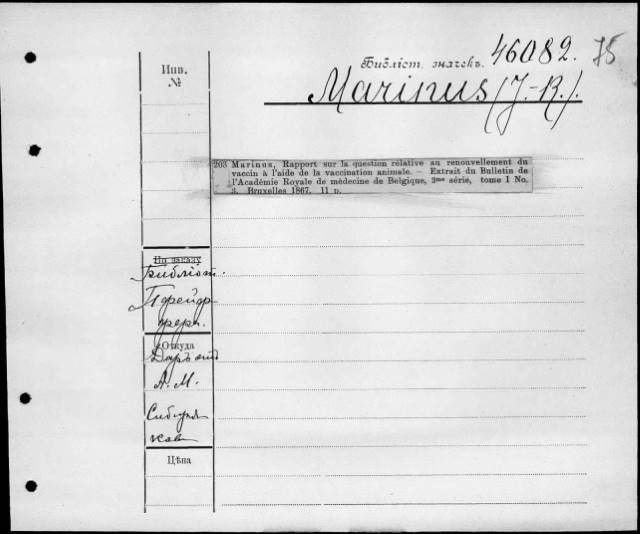 Библіот. значекъ. 46082. 75
Marinus (J.-R.).
Инв.
№
203 Marinus, Rapport sur la question relative au renouvellement du
vaccin à l'aide de la vaccination animale. – Extrait du Bulletin de
l'Académie Royale de médecine de Belgique, 3me série, tome I No.
3. Bruxelles 1867. 11 p.
По заказу
Библіот.
Откуда
Даръ
А. М.
Цѣна